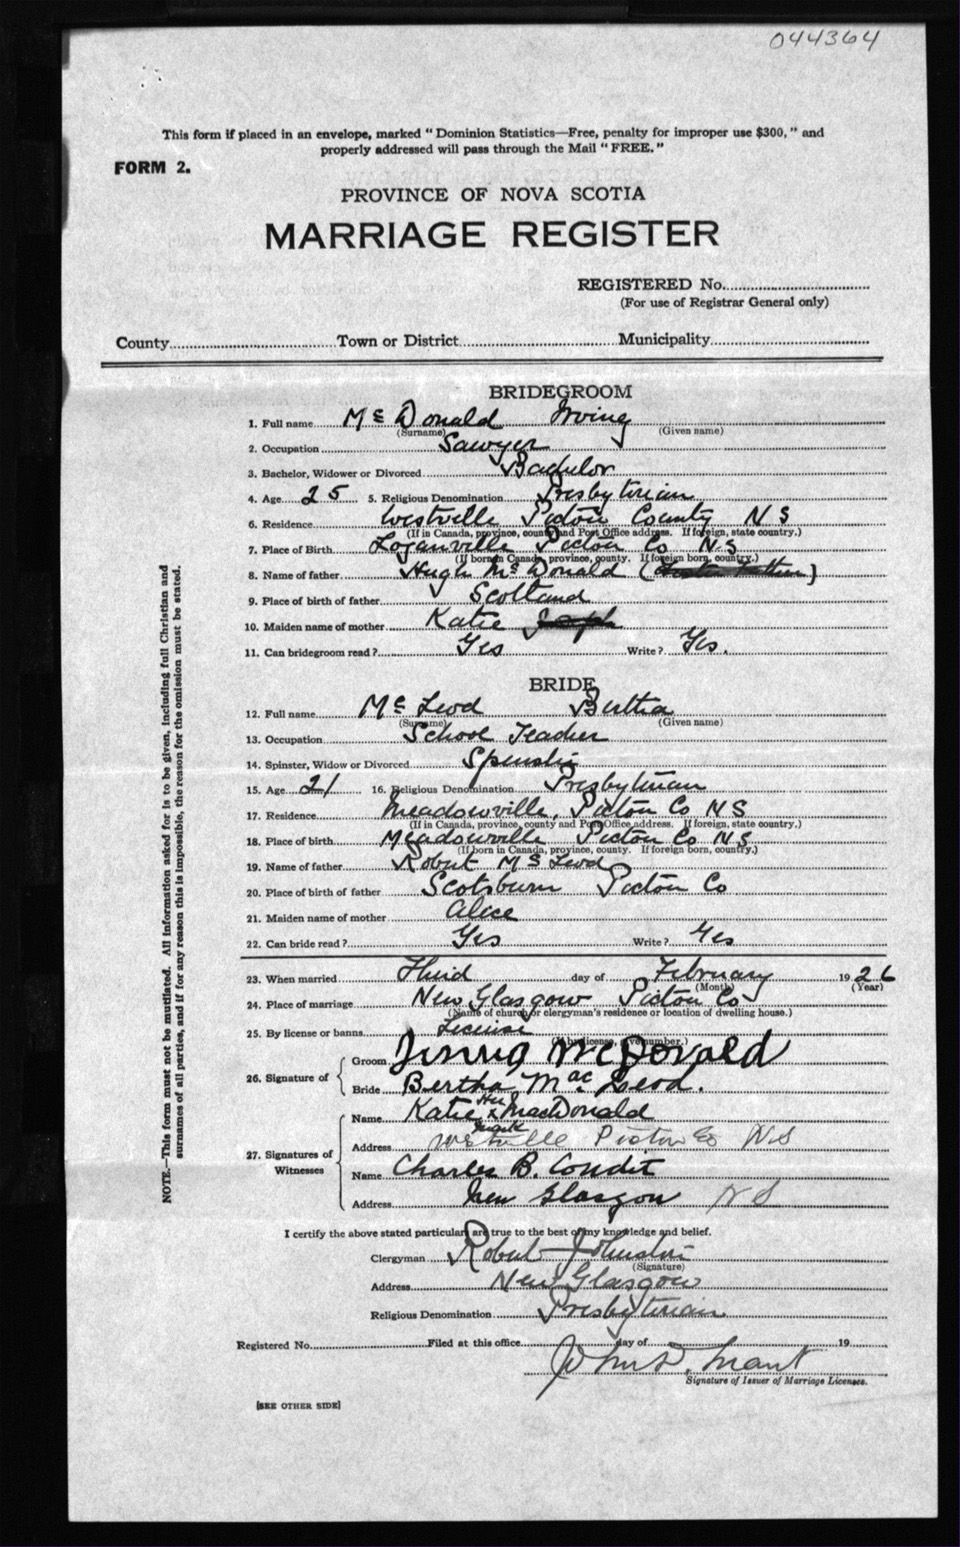 044364
This form if placed in an envelope, marked "Dominion Statistics—Free, penalty for improper use $300," and
properly addressed will pass through the Mail "FREE."
FORM 2.
PROVINCE OF NOVA SCOTIA
MARRIAGE REGISTER
REGISTERED No.
(For use of Registrar General only)
County Town or District Municipality
BRIDEGROOM
1. Full name Mc Donald Irving
(Surname) (Given name)
2. Occupation Sawyer
3. Bachelor, Widower or Divorced Bachelor
4. Age 25 5. Religious Denomination Presbyterian
6. Residence Westville Pictou County N S
(If in Canada, province, county and Post Office address. If foreign, state country.)
7. Place of Birth Loganville Pictou Co N.S
(If born in Canada, province, county. If foreign born, country.)
8. Name of father Hugh Mc Donald (Foster Father)
9. Place of birth of father Scotland
10. Maiden name of mother Katie
11. Can bridegroom read? Yes Write? Yes.
BRIDE
12. Full name Mc Leod Bertha
(Surname) (Given name)
13. Occupation School Teacher
14. Spinster, Widow or Divorced Spinster
15. Age 21 16. Religious Denomination Presbyterian
17. Residence Meadowville, Pictou Co N S
(If in Canada, province, county and Post Office address. If foreign, state country.)
18. Place of birth Meadowville Pictou Co N S
(If born in Canada, province, county. If foreign born, country.)
19. Name of father Robert Mc Leod
20. Place of birth of father Scotsburn Pictou Co
21. Maiden name of mother Alice
22. Can bride read? Yes Write? Yes
23. When married Third day of February 1926
(Month) (Year)
24. Place of marriage New Glasgow Pictou Co
(Name of church or clergyman's residence or location of dwelling house.)
25. By license or banns License
(If by license, give number.)
26. Signature of
Groom Irving McDonald
Bride Bertha Mac Leod.
27. Signatures of Witnesses
Name Katie Her x mark MacDonald
Address Westville Pictou Co N.S
Name Charles B. Condit
Address New Glasgow N S
I certify the above stated particulars are true to the best of my knowledge and belief.
Clergyman Robert Johnston
(Signature)
Address New Glasgow
Religious Denomination Presbyterian
Registered No. Filed at this office day of 19
John D. Grant
Signature of Issuer of Marriage Licenses.
[SEE OTHER SIDE]
NOTE.—This form must not be mutilated. All information asked for is to be given, including full Christian and
surnames of all parties, and if for any reason this is impossible, the reason for the omission must be stated.